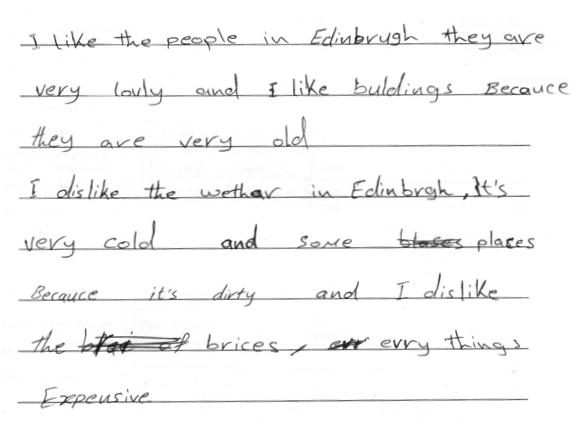 I like the people in Edinbrugh they are
very lovly and I like buldings Becauce
they are very old
I dislike the wethar in Edinbrgh, It's
very cold and some places
Becauce it's dirty and I dislike
the brices, evry things
Expensive